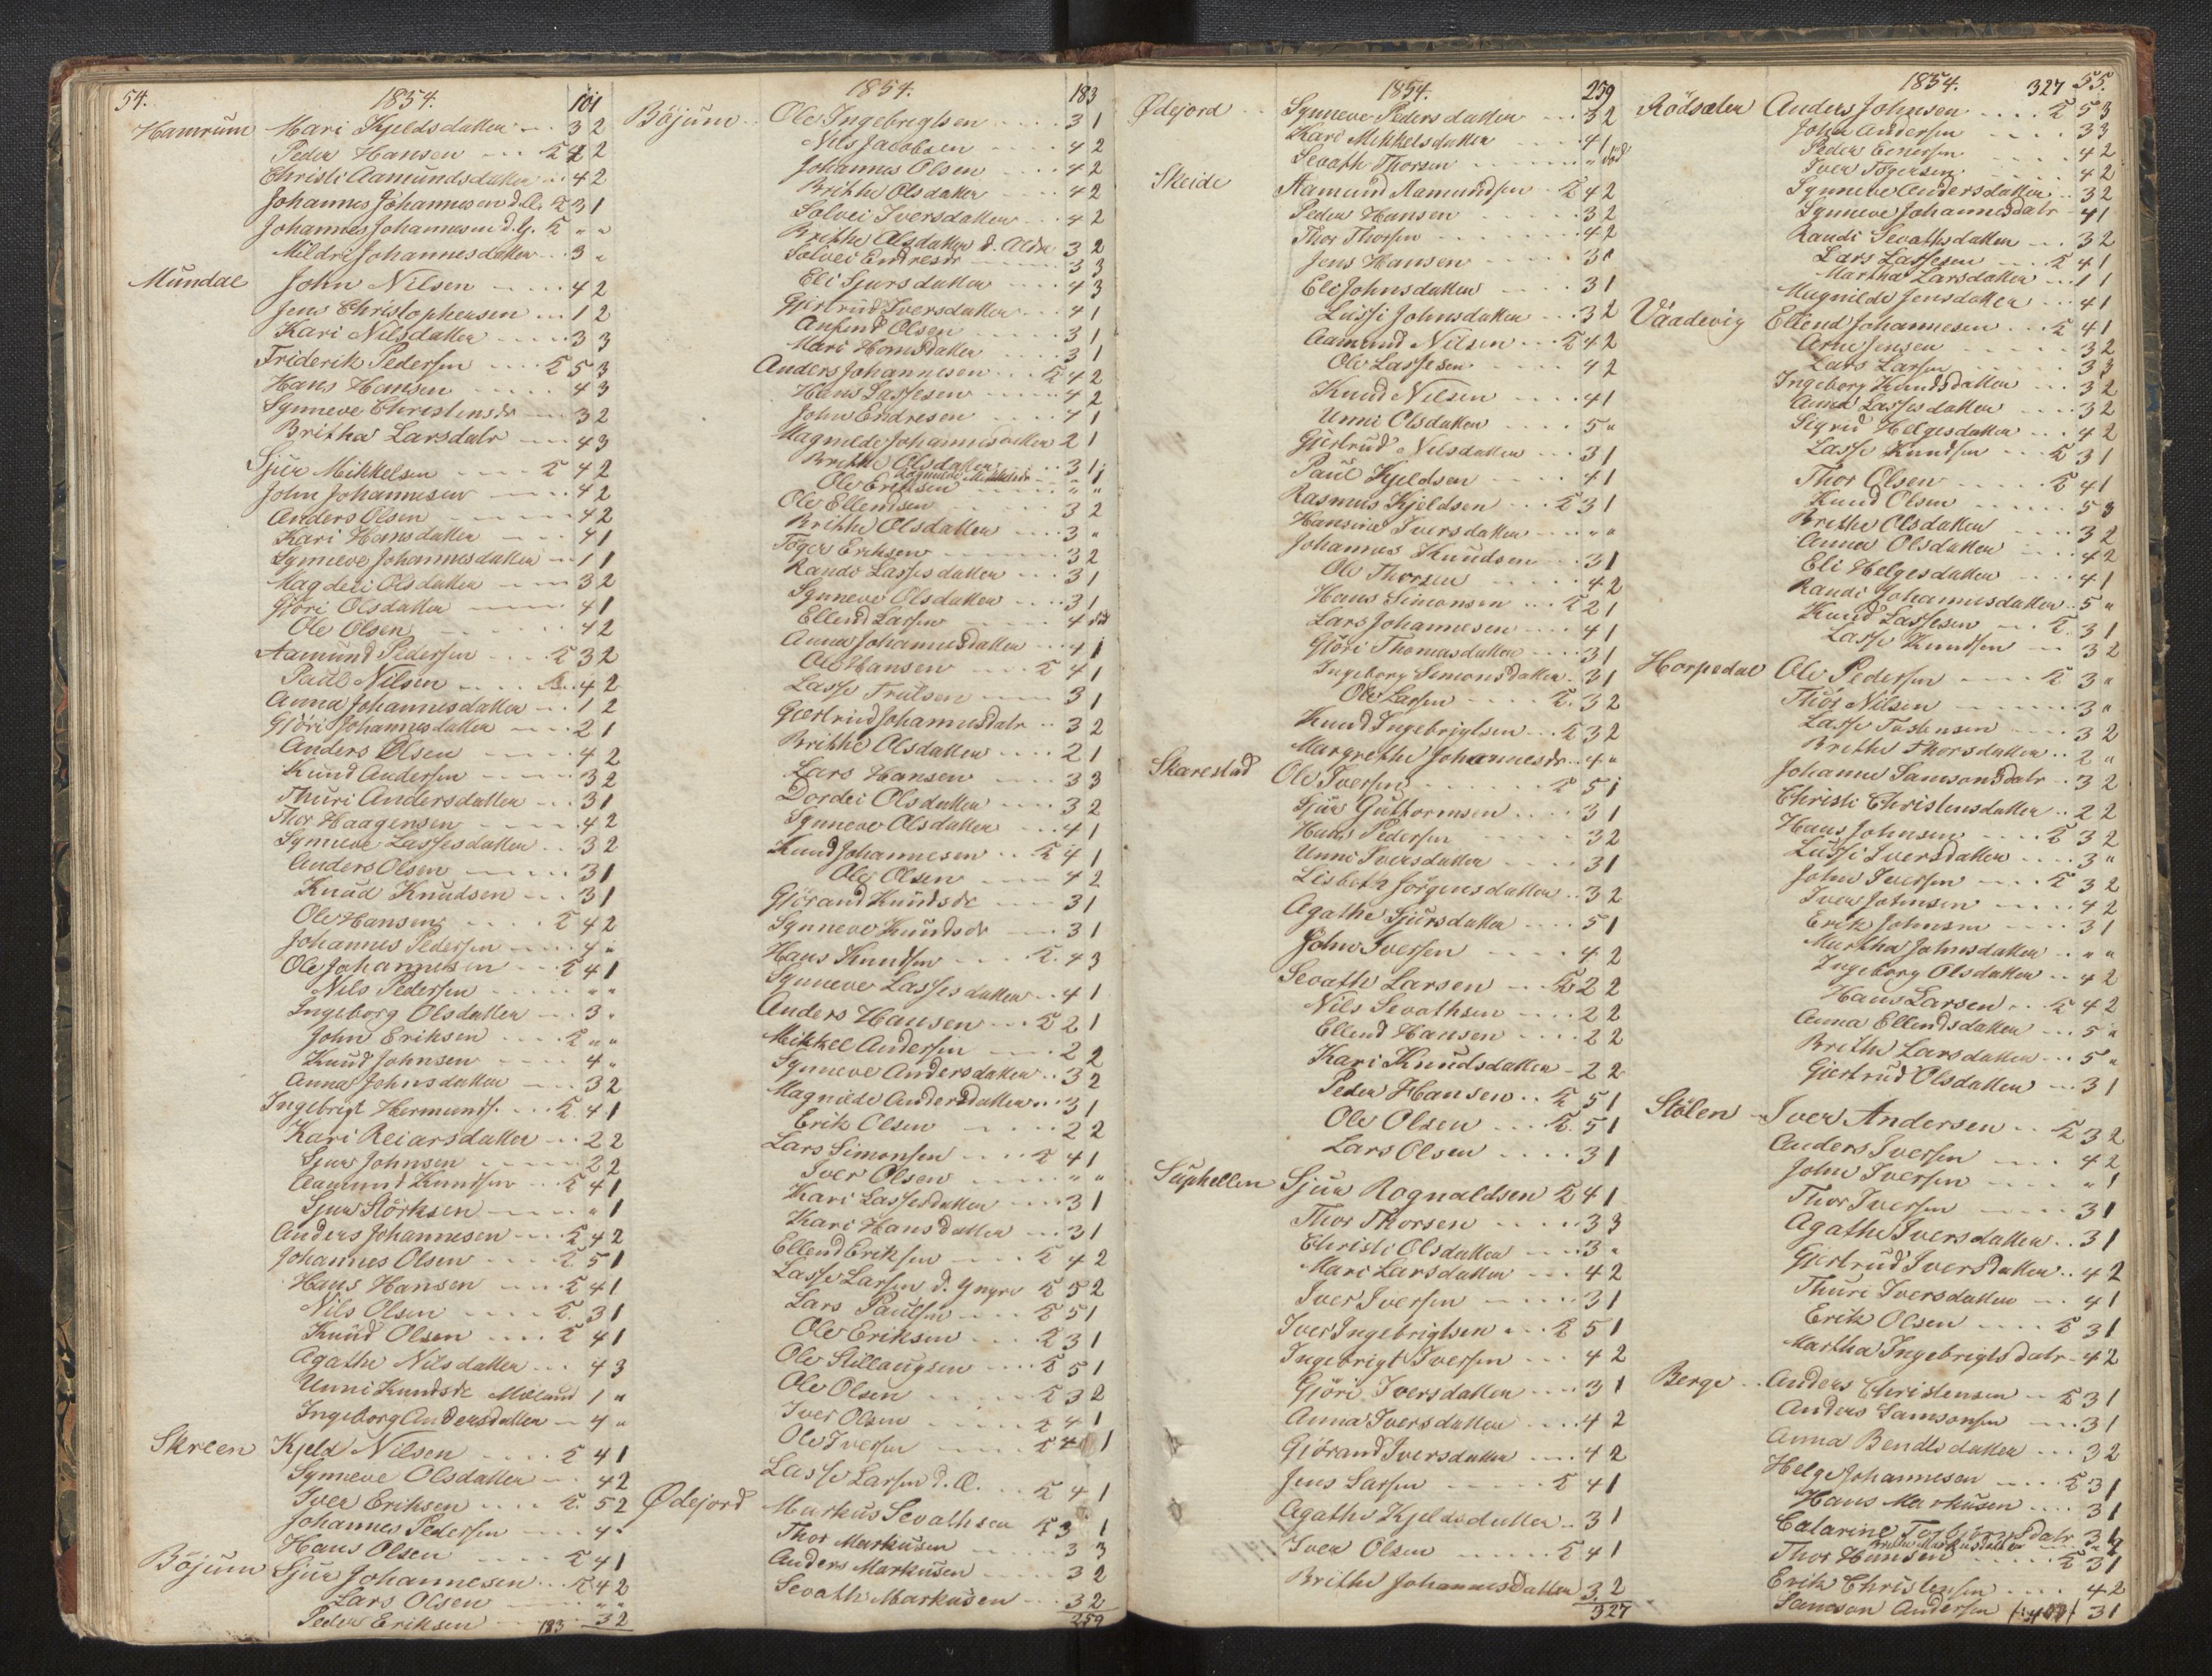 54. 1854. 101
Hamrum Mari Kjeldsdatter 3 2
Peder Hansen 2 2
Christi Aamundsdatter 4 2
Johannes Johannesen d. Æ. 3 1
Johannes Johannesen d. Y. " "
Mildri Johannesdatter 3 "
Mundal John Nilsen 4 2
Jens Christophersen 1 2
Kari Nilsdatter 3 3
Friderik Pedersen 5 3
Hans Hansen 4 3
Synneve Christensdr 3 2
Britha Larsdatr 4 3
Sjur Mikkelsen 4 2
John Johannesen 4 2
Anders Olsen 4 2
Kari Hansdatter 4 1
Synneve Johannesdatter 1 1
Magdeli Olsdatter 3 2
Gjöri Olsdatter 4 1
Ole Olsen 4 2
Aamund Pedersen 3 2
Paul Nilsen 4 2
Anna Johannesdatter 1 2
Gjöri Johannesdatter 2 1
Anders Olsen 4 2
Knud Andersen 3 2
Thuri Andersdatter 3 1
Thor Haagensen 4 2
Synneve Lassesdatter 3 2
Anders Olsen 3 1
Knud Knudsen 3 1
Ole Hansen 4 2
Johannes Pedersen 4 "
Ole Johannesen 4 1
Nils Pedersen " "
Ingeborg Olsdatter 3 "
John Eriksen " "
Knud Johnsen 4 "
Anna Johnsdatter 3 2
Ingebrigt Hermunds. 4 1
Kari Reiarsdatter 2 2
Sjur Johnsen 2 2
Aamund Knudsen 4 1
Sjur Störksen " 1
Anders Johannesen 4 2
Johannes Olsen 5 1
Hans Hansen 4 1
Nils Olsen 3 1
Knud Olsen 4 1
Agathe Nilsdatter 4 3
Unni Knudsdr 1 "
Ingeborg Andersdatter 4 "
Skreen Kjeld Nilsen 4 1
Synneve Olsdatter 4 2
Iver Eriksen 5 2
Johannes Pedersen 4 "
Hans Olsen 4 1
Böjum Sjur Johannesen 4 2
Lars Olsen " "
Peder Eriksen 3 2
183
1854. 183
Böjum Ole Ingebrigtsen 3 1
Nils Jacobsen 4 2
Johannes Olsen 4 2
Brithe Olsdatter 4 2
Solvei Iversdatter 4 2
Brithe Olsdatter d. Ældr 3 2
Solvei Endresdr 3 3
Eli Sjursdatter 4 3
Gjertrud Iversdatter 4 1
Anfind Olsen 3 1
Mari Hansdatter 3 1
Anders Johannesen 4 2
Hans Lassesen 4 2
John Endresen 4 1
Magnilde Johannesdatter 2 1
Brithe Olsdatter 3 1
Ole Eriksen " "
Ole Ellendsen 3 2
Brithe Olsdatter 3 "
Töger Eriksen 3 2
Randi Lassesdatter 3 1
Synneve Olsdatter 3 1
Ellend Larsen 4
Anna Johannesdatter 4 1
Ole Hansen 4 1
Lasse Trulsen 3 1
Gjertrud Johannesdatr 3 2
Brithe Olsdatter 2 1
Lars Hansen 3 3
Dordei Olsdatter 3 2
Synneve Olsdatter 4 1
Knud Johannesen 4 1
Ole Olsen 4 2
Gjörand Knudsdr 3 1
Synneve Knudsdr 3 1
Hans Knudsen 4 3
Synneve Lassesdatter 4 1
Anders Hansen 2 1
Mikkel Andersen 2 2
Synneve Andersdatter 3 2
Magnilde Andersdatter 3 1
Erik Olsen 2 2
Lars Simonsen 4 1
Iver Olsen " "
Kari Lassesdatter 3 1
Kari Hansdatter 3 1
Ellend Eriksen 4 2
Lasse Larsen d. Yngre 5 2
Lars Paulsen 5 1
Ole Eriksen 3 1
Ole Stillaugsen 5 1
Ole Olsen 3 2
Iver Olsen 4 1
Ole Iversen 4 1
Lasse Larsen d. Æ. 4 1
Ødejord Markus Sevathsen 3 1
Thor Markusen 3 3
Anders Markusen 3 2
Sevath Markusen 3 2
259
1854. 259
Ødejord Synneve Pedersdatter 3 2
Kari Mikkelsdatter 4 1
Sevath Thorsen " död
Skeide Aamund Aamundsen 4 2
Peder Hansen 3 2
Thor Thorsen 4 2
Jens Hansen 3 1
Eli Johnsdatter 3 1
Lussi Johnsdatter 3 2
Aamund Nilsen 4 2
Ole Lassesen 4 2
Knud Nilsen 4 1
Unni Olsdatter 5 "
Gjertrud Nilsdatter 3 1
Paul Kjeldsen 4 1
Rasmus Kjeldsen 3 1
Hansine Iversdatter " "
Johannes Knudsen 3 1
Ole Thorsen 4 2
Hans Simonsen 2 1
Lars Johannesen 4 1
Gjöri Thomasdatter 3 1
Ingeborg Simonsdatter 3 1
Ole Larsen 3 2
Knud Ingebrigtsen 3 2
Margrethe Johannesdr 4 "
Skarestad Ole Iversen 5 1
Sjur Guttormsen 3 1
Hans Pedersen 3 2
Unni Iversdatter 3 1
Lisbeth Jörgensdatter 3 2
Agathe Sjursdatter 5 1
John Iversen 4 2
Sevath Larsen 2 2
Nils Sevathsen 2 2
Ellend Hansen 2 2
Kari Knudsdatter 2 2
Peder Hansen 5 1
Ole Olsen 5 1
Lars Olsen 3 1
Suphellen Sjur Rognaldsen 4 1
Thor Thorsen 3 3
Christi Olsdatter 3 "
Mari Larsdatter 4 2
Iver Iversen 3 1
Iver Ingebrigtsen 5 1
Ingebrigt Iversen 4 2
Gjöri Iversdatter 3 1
Anna Iversdatter 4 2
Gjörand Iversdatter 4 2
Jens Larsen 4 1
Agathe Kjeldsdatter 3 1
Iver Olsen 4 1
Brithe Johannesdatter 3 2
327
1854. 327 55.
Rödsæter Anders Johnsen 5 3
John Andersen 3 3
Peder Einersen 4 2
Iver Tögersen 4 2
Synneve Andersdatter 3 2
Synneve Johannesdatr 4 1
Randi Sevathsdatter 3 2
Lars Lassesen 4 1
Martha Larsdatter 1 1
Magnilde Jensdatter 4 1
Vaadevig Ellend Johannesen 4 1
Arne Jensen 3 2
Lars Larsen 3 3
Ingeborg Knudsdatter 3 2
Anna Lassesdatter 3 2
Sigrid Helgesdatter 4 2
Lasse Knudsen 3 1
Thor Olsen 4 1
Knud Olsen 5 3
Brithe Olsdatter 3 2
Anna Olsdatter 4 2
Eli Helgesdatter 4 1
Randi Johannesdatter 5 "
Knud Lassesen 3 1
Lasse Knudsen 3 2
Horpedal Ole Pedersen 3 "
Thor Nilsen 3 "
Lasse Tostensen 3 2
Brithe Thorsdatter 2 "
Johanne Samsonsdatr 3 2
Christi Christensdatter 2 2
Hans Johnsen 3 2
Lussi Iversdatter 3 "
John Iversen 3 2
Iver Johnsen 4 2
Erik Johnsen 3 1
Martha Johnsdatter " "
Ingeborg Olsdatter 4 2
Hans Larsen 4 2
Anna Ellendsdatter 5 "
Brithe Larsdatter 5 "
Gjertrud Olsdatter 3 1
Stölen Iver Andersen 3 2
Anders Iversen 4 2
John Iversen " 1
Thor Iversen 3 1
Agathe Iversdatter 3 1
Gjertrud Iversdatter 4 2
Thuri Iversdatter 4 1
Erik Olsen 3 1
Martha Ingebrigtsdatr 4 2
Berge Anders Christensen 3 1
Anders Samsonsen 3 1
Anna Bendtsdatter 3 2
Helge Johannesen 3 1
Hans Markusen 3 1
Catarine Torbjörnsdatr 3
Thor Hansen 3 1
Erik Christensen 4 2
Samson Andersen 3 1